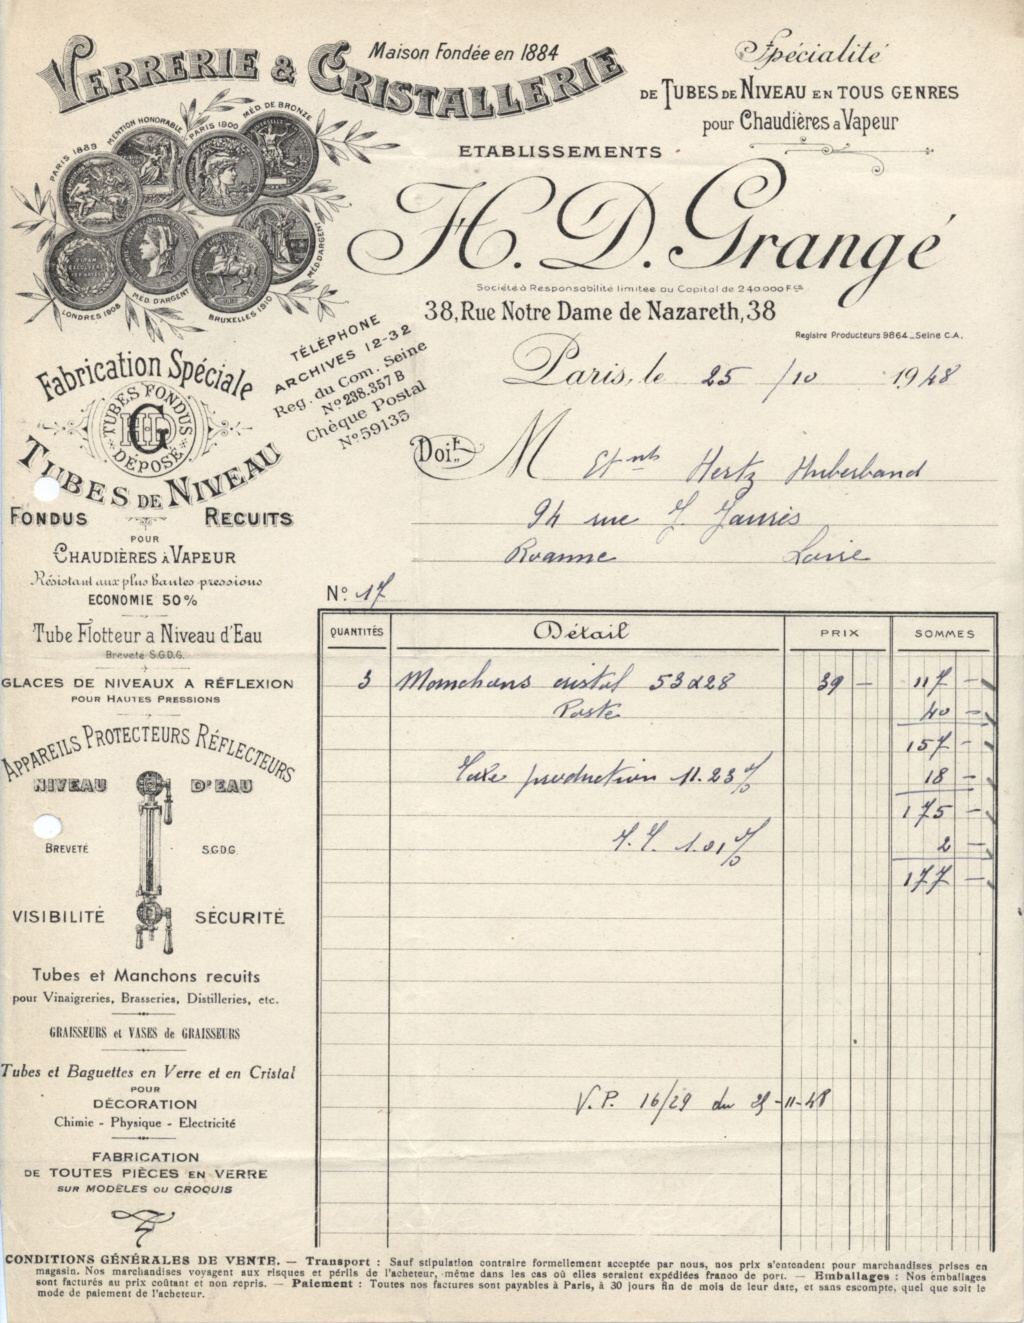 VERRERIE & CRISTALLERIE
Maison Fondée en 1884
Spécialité
DE TUBES DE NIVEAU EN TOUS GENRES
pour Chaudières a Vapeur
ETABLISSEMENTS
H. D. Grangé
Société à Responsabilité limitée au Capital de 240.000 Fcs
38, Rue Notre Dame de Nazareth, 38
Registre Producteurs 9864_Seine C.A.
PARIS 1889
MENTION HONORABLE
PARIS 1900
MÉD. DE BRONZE
LONDRES 1908
MÉD. D'ARGENT
BRUXELLES 1910
MÉD D'ARGENT
TÉLÉPHONE
ARCHIVES 12-32
Reg. du Com. Seine
No 238.357 B
Chèque Postal
No 59135
Paris, le 25 /10 1948
Doit M Etnts Hertz Huberband
94 rue J Jaurès
Roanne Loire
Fabrication Spéciale
TUBES FONDUS
HDG
DÉPOSÉ
TUBES DE NIVEAU
FONDUS RECUITS
POUR
CHAUDIÈRES À VAPEUR
Résistant aux plus hautes pressions
ECONOMIE 50%
Tube Flotteur a Niveau d'Eau
Breveté S.G.D.G.
GLACES DE NIVEAUX A RÉFLEXION
POUR HAUTES PRESSIONS
APPAREILS PROTECTEURS RÉFLECTEURS
NIVEAU D'EAU
BREVETÉ S.G.D.G
VISIBILITÉ SÉCURITÉ
Tubes et Manchons recuits
pour Vinaigreries, Brasseries, Distilleries, etc.
GRAISSEURS et VASES de GRAISSEURS
Tubes et Baguettes en Verre et en Cristal
POUR
DÉCORATION
Chimie - Physique - Electricité
FABRICATION
DE TOUTES PIÈCES EN VERRE
SUR MODÈLES OU CROQUIS
No 17
QUANTITÉS Détail PRIX SOMMES
3 Manchons cristal 53 x 28 39 - 117 -
Poste 40 -
157 -
Taxe production 11.23 % 18 -
175 -
T.T. 1.01 % 2 -
177 -
V.P. 16/29 du 25-11-48
CONDITIONS GÉNÉRALES DE VENTE. — Transport : Sauf stipulation contraire formellement acceptée par nous, nos prix s'entendent pour marchandises prises en
magasin. Nos marchandises voyagent aux risques et périls de l'acheteur, même dans les cas où elles seraient expédiées franco de port. — Emballages : Nos emballages
sont facturés au prix coûtant et non repris. — Paiement : Toutes nos factures sont payables à Paris, à 30 jours fin de mois de leur date, et sans escompte, quel que soit le
mode de paiement de l'acheteur.